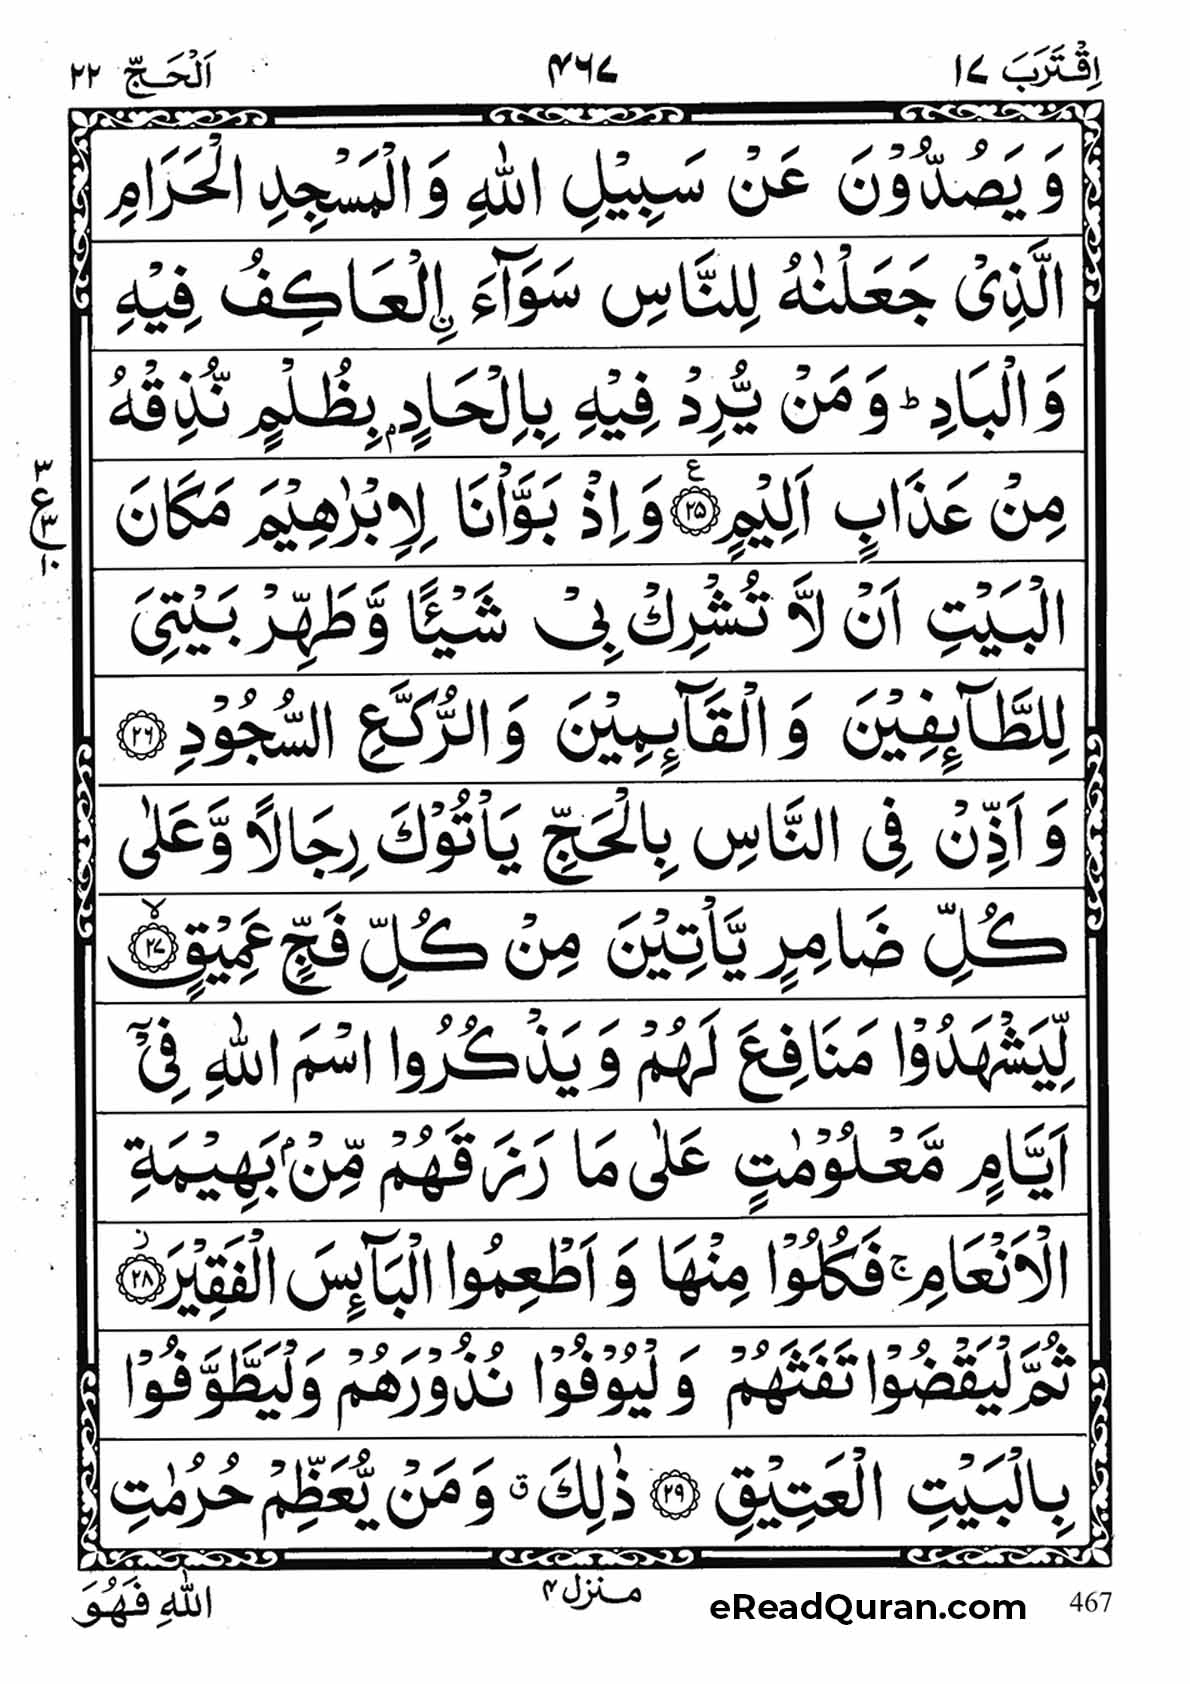 اِقْتَرَبَ ١٧
٤٦٧
اَلْحَجّ ٢٢
وَ يَصُدُّوْنَ عَنْ سَبِيْلِ اللّٰهِ وَ الْمَسْجِدِ الْحَرَامِ
الَّذِیْ جَعَلْنٰهُ لِلنَّاسِ سَوَآءَ اۨلْعَاكِفُ فِیْهِ
وَ الْبَادِ ؕ وَ مَنْ یُّرِدْ فِیْهِ بِاِلْحَادٍۭ بِظُلْمٍ نُّذِقْهُ
مِنْ عَذَابٍ اَلِیْمٍ ﴿٢٥﴾ ع وَ اِذْ بَوَّاْنَا لِاِبْرٰهِیْمَ مَكَانَ
٣ ع ٣ ١٠
الْبَیْتِ اَنْ لَّا تُشْرِكْ بِیْ شَیْـًٔا وَّ طَهِّرْ بَیْتِیَ
لِلطَّآىِٕفِیْنَ وَ الْقَآىِٕمِیْنَ وَ الرُّكَّعِ السُّجُوْدِ ﴿٢٦﴾
وَ اَذِّنْ فِی النَّاسِ بِالْحَجِّ یَاْتُوْكَ رِجَالًا وَّ عَلٰی
كُلِّ ضَامِرٍ یَّاْتِیْنَ مِنْ كُلِّ فَجٍّ عَمِیْقٍ ﴿٢٧﴾ ۙ
لِّیَشْهَدُوْا مَنَافِعَ لَهُمْ وَ یَذْكُرُوا اسْمَ اللّٰهِ فِیْۤ
اَیَّامٍ مَّعْلُوْمٰتٍ عَلٰی مَا رَزَقَهُمْ مِّنْۢ بَهِیْمَةِ
الْاَنْعَامِ ۚ فَكُلُوْا مِنْهَا وَ اَطْعِمُوا الْبَآىِٕسَ الْفَقِیْرَ ﴿٢٨﴾ ز
ثُمَّ لْیَقْضُوْا تَفَثَهُمْ وَ لْیُوْفُوْا نُذُوْرَهُمْ وَ لْیَطَّوَّفُوْا
بِالْبَیْتِ الْعَتِیْقِ ﴿٢٩﴾ ذٰلِكَ ق وَ مَنْ یُّعَظِّمْ حُرُمٰتِ
اللّٰهِ فَهُوَ
منزل ٤
eReadQuran.com
467